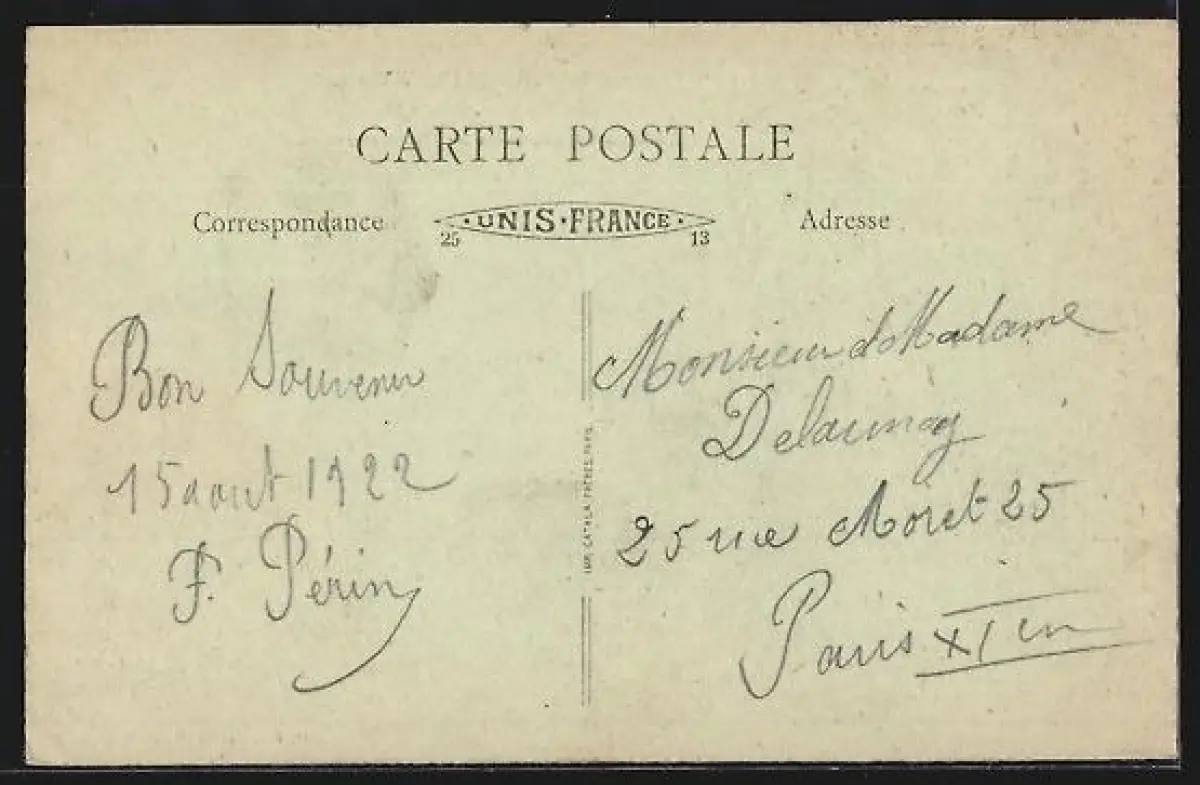 CARTE POSTALE
Correspondance
·UNIS·FRANCE·
25 13
Adresse
Bon Souvenir
15 aout 1922
F. Périn
IMP. CATALA FRÈRES, PARIS
Monsieur et Madame
Delaunay
25 rue Moret 25
Paris XI em